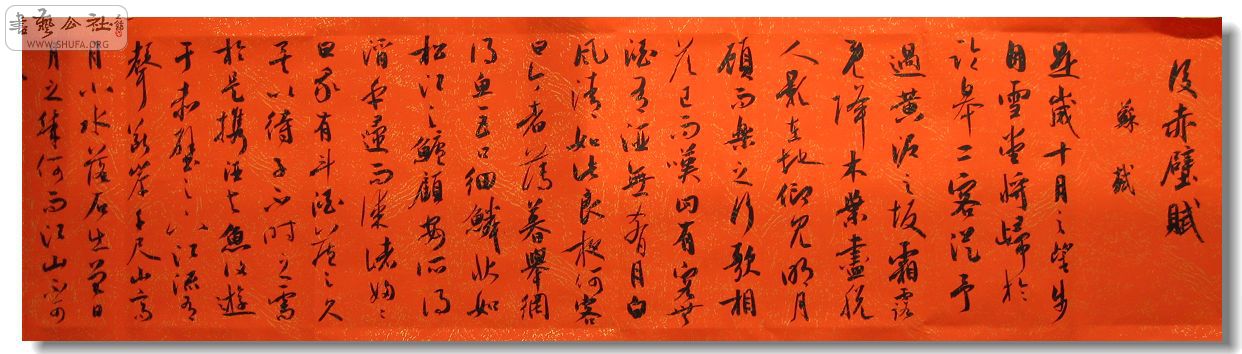 書藝公社
WWW.SHUFA.ORG
後赤壁賦
蘇軾
是歲十月之望步
自雪堂將歸於
臨皋二客從予
過黃泥之坂霜露
既降木葉盡脫
人影在地仰見明月
顧而樂之行歌相
答已而嘆曰有客無
酒有酒無肴月白
風清如此良夜何客
曰今者薄暮舉網
得魚巨口細鱗狀如
松江之鱸顧安所得
酒乎歸而謀諸婦婦
曰我有斗酒藏之久
矣以待子不時之需
於是攜酒與魚復遊
于赤壁之下江流有
聲斷岸千尺山高
月小水落石出曾日
月之幾何而江山不可